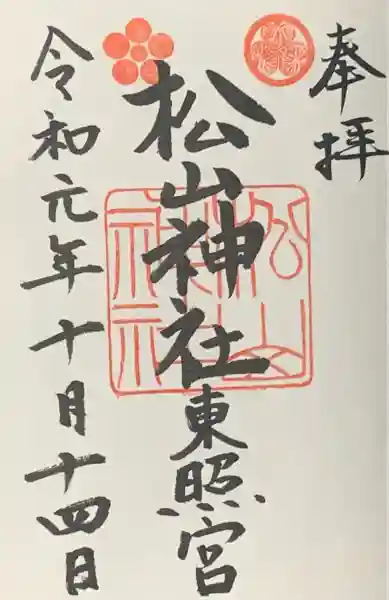 奉拝
松山神社東照宮
令和元年十月十四日
松山神社